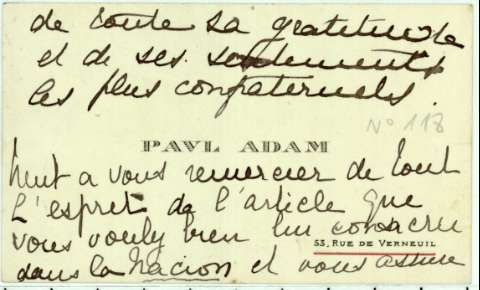 de toute sa gratitude
et de ses sentiments
les plus confraternels.
N° 118
PAVL ADAM
tient a vous remercier de tout
L'espret de l'article que
vous vouly bien lui consacrer
53, RUE DE VERNEUIL
dans la Nacion et vous assure